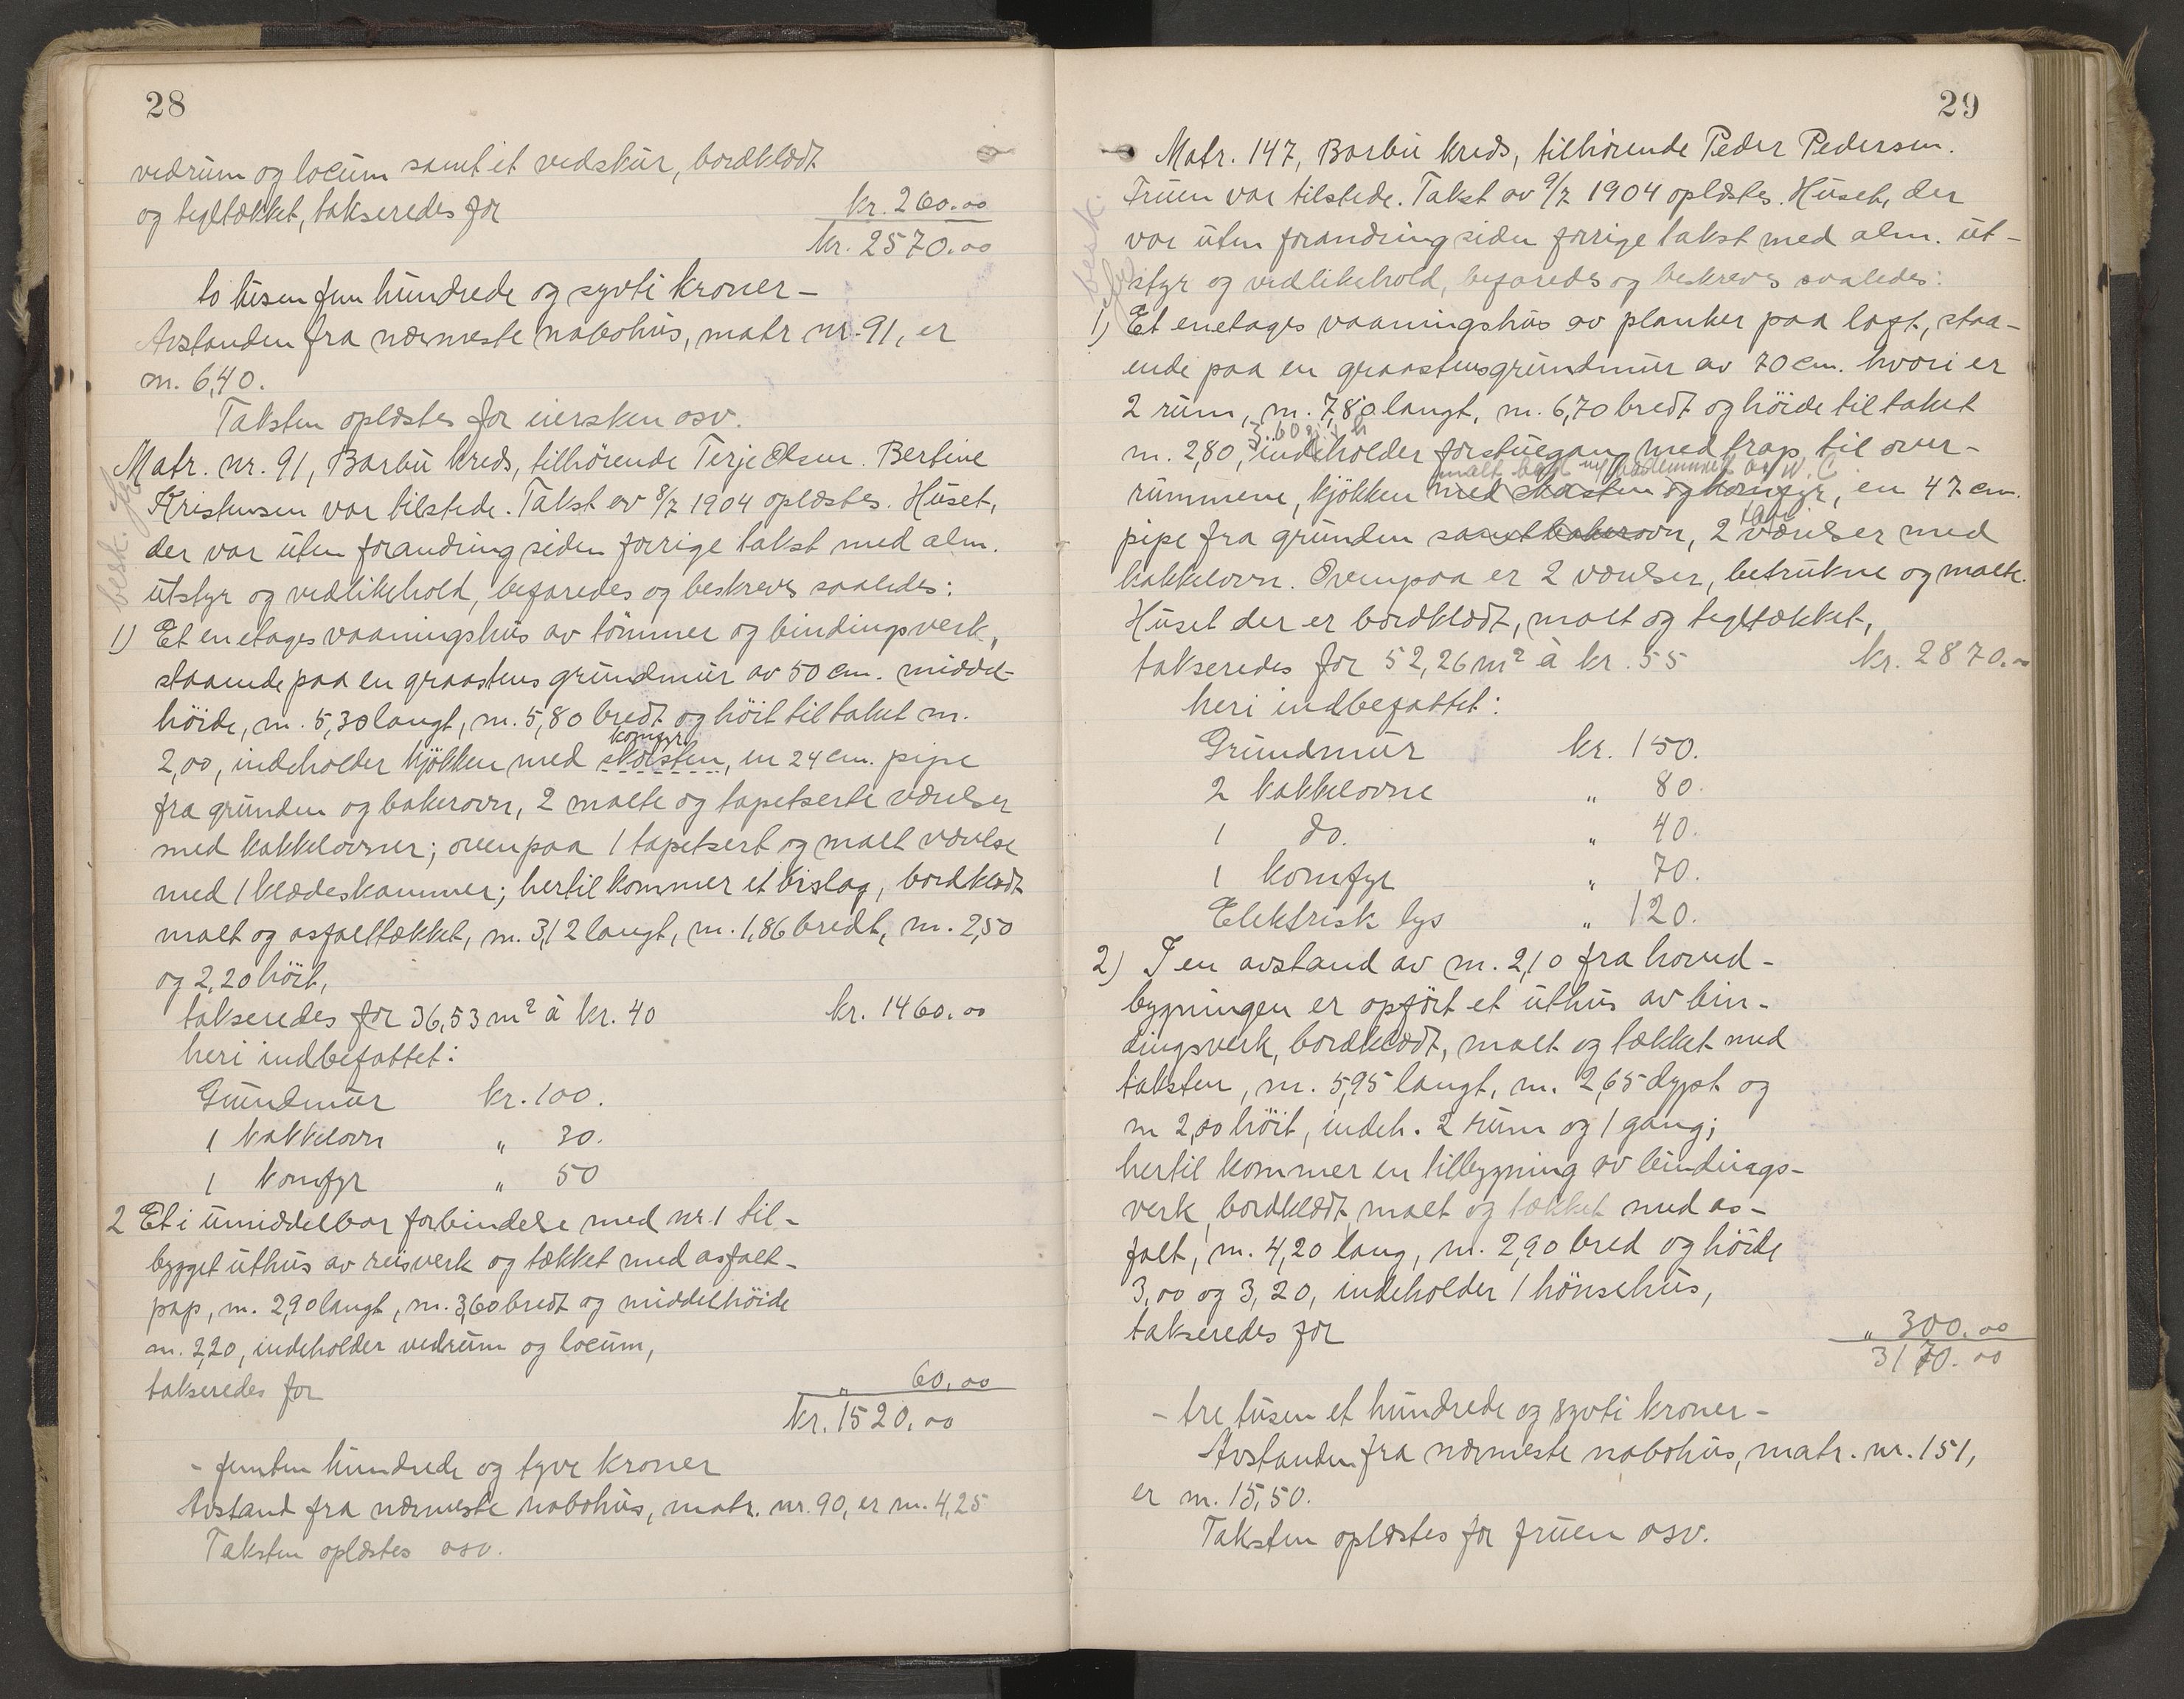 28
vedrum og locum samt et vedskur, bordklædt
og tegltækket, takseredes for kr. 260.00
kr. 2570.00
to tusen fem hundrede og sytti kroner –
Avstanden fra nærmeste nabohus, matr nr. 91, er
m. 6,40.
Taksten oplæstes for eiersken osv.
Matr. nr. 91, Barbu kreds, tilhørende Terje Olsen. Bertine
Kristensen var tilstede. Takst av 8/7 1904 oplæstes. Huset,
der var uten forandring siden forrige takst med alm.
utstyr og vedlikehold, befaredes og beskrevs saaledes:
besk.
1) Et enetages vaaningshus av tömmer og bindingsverk,
staaende paa en graastens grundmur av 50 cm. middel-
höide, m. 5,30 langt, m. 5,80 bredt og höit til taket m.
komfyr
2,00, indeholder kjökken med skorsten, en 24 cm. pipe
fra grunden og bakerovn, 2 malte og tapetserte værelser
med kakkelovner; ovenpaa 1 tapetsert og malt værelse
med 1 klædeskammer; hertil kommer et bislag, bordklædt
malt og asfalttækket, m. 3,12 langt, m. 1,86 bredt, m. 2,50
og 2,20 höit,
takseredes for 36,53 m² à kr. 40 kr. 1460.00
heri indbefattet:
Grundmur kr. 100.
1 kakkelovn " 30.
1 komfyr " 50
2 Et i umiddelbar forbindelse med nr. 1 til-
bygget uthus av reisverk og tækket med asfalt-
pap, m. 2,90 langt, m. 3,60 bredt og middelhöide
m. 2,20, indeholder vedrum og locum,
takseredes for " 60.00
kr. 1520.00
- femten hundrede og tyve kroner
Avstand fra nærmeste nabohus, matr. nr. 90, er m. 4,25
Taksten oplæstes osv.
29
Matr. 147, Barbu kreds, tilhörende Peder Pedersen.
Fruen var tilstede. Takst av 9/7 1904 oplæstes. Huset, der
var uten forandring siden forrige takst med alm. ut-
styr og vedlikehold, befaredes og beskrevs saaledes:
besk.
1) Et enetages vaaningshus av planker paa laft, staa-
ende paa en graastensgrundmur av 70 cm. hvori er
2 rum, m. 7,80 langt, m. 6,70 bredt og höide til taket
m. 2,80, indeholder forstuegang med trap til over-
malt
rummene, kjökken med skorsten og komfyr, en 47 cm.
pipe fra grunden samt bakerovn, 2 værelser med
kakkelovn. Ovenpaa er 2 værelser, betrukne og malte.
Huset der er bordklædt, malt og tegltækket,
takseredes for 52,26 m² à kr. 55 kr. 2870.00
heri indbefattet:
Grundmur kr. 150.
2 kakkelovne " 80.
1 do. " 40.
1 komfyr " 70.
Elektrisk lys " 120.
2) I en avstand av m. 2,10 fra hoved-
bygningen er opført et uthus av bin-
dingsverk, bordklædt, malt og tækket med
taksten, m. 5,95 langt, m. 2,65 dypt og
m 2,00 höit, indeh. 2 rum og 1 gang;
hertil kommer en tilbygning av bindings-
verk, bordklædt, malt og tækket med as-
falt, m. 4,20 lang, m. 2,90 bred og höide
3,00 og 3,20, indeholder 1 hönsehus,
takseredes for " 300.00
3170.00
- tre tusen et hundrede og sytti kroner -
Avstanden fra nærmeste nabohus, matr. nr. 151,
er m. 15,50.
Taksten oplæstes for fruen osv.